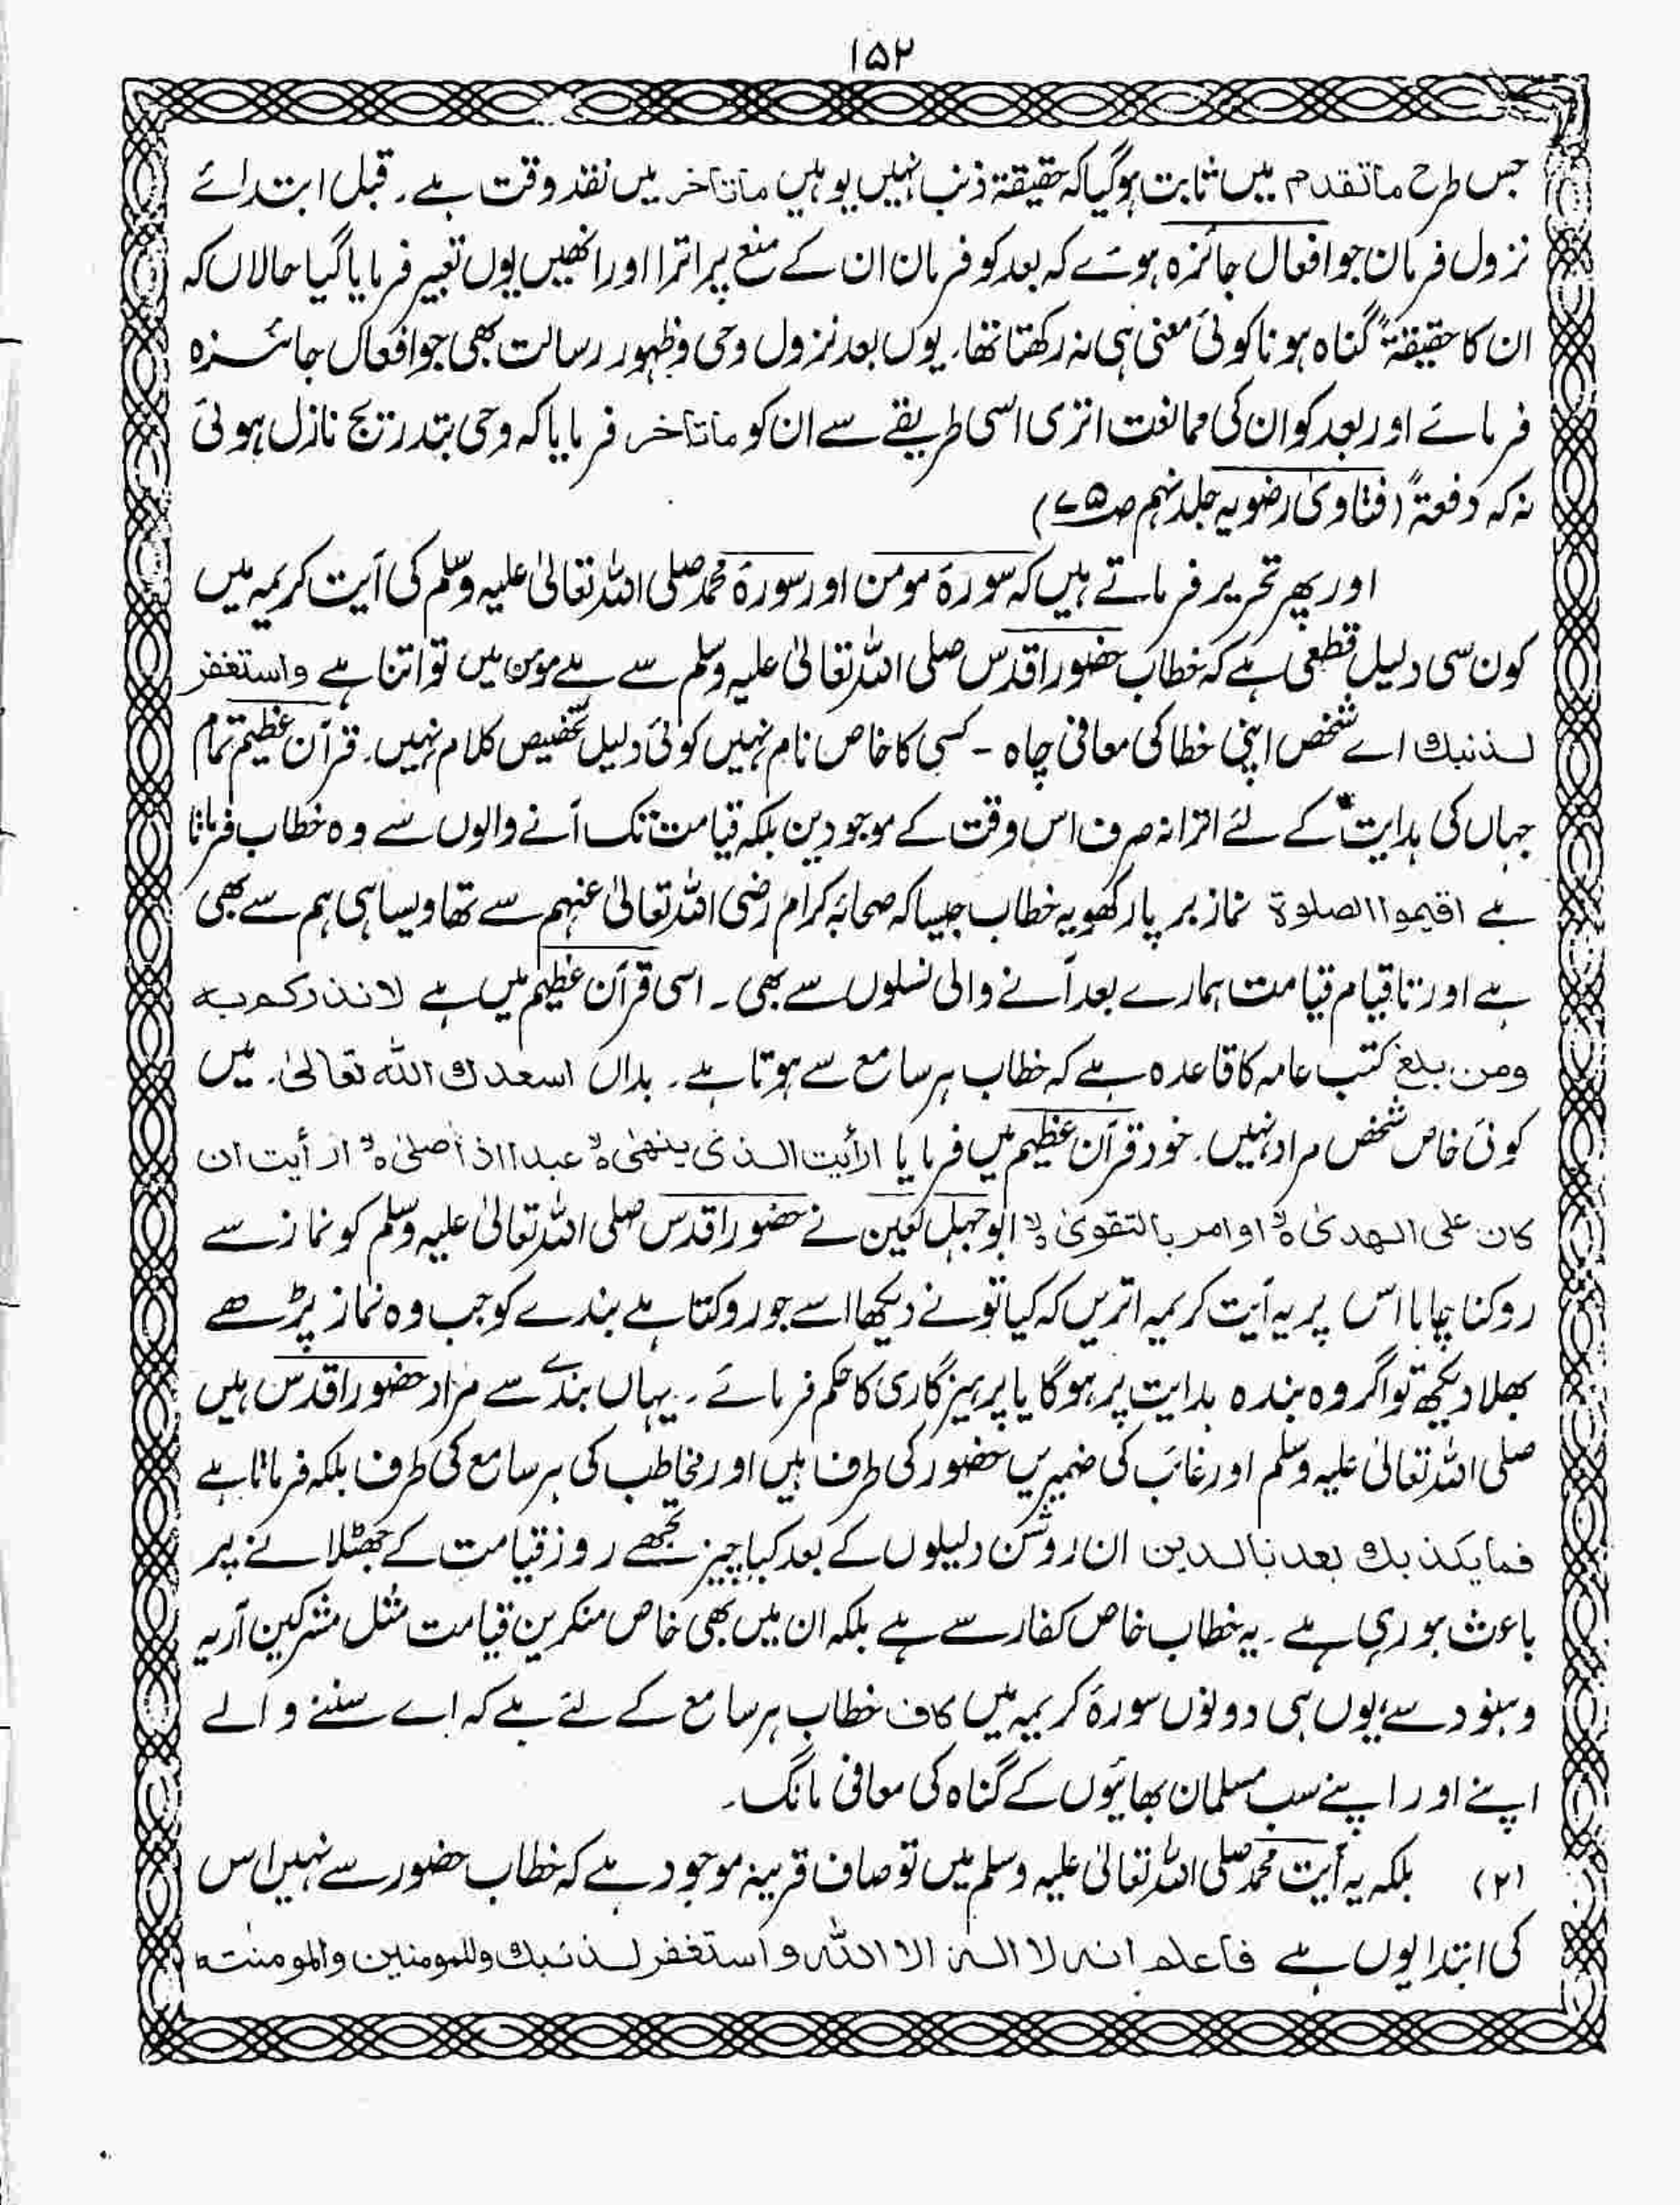 ۱۵۲
جس طرح ماتقدم میں ثابت ہوگیا کہ حقیقۃً ذنب نہیں یوہیں ماتاخر میں نقد وقت ہے۔ قبل ابتدائے
نزول فرمان جو افعال جائزہ ہوئے کہ بعد کو فرمان ان کے منع پر اترا اور انھیں یوں تعبیر فرمایا گیا حالاں کہ
ان کا حقیقۃً گناہ ہونا کوئی معنی ہی نہ رکھتا تھا۔ یوں بعد نزول وحی وظہور رسالت بھی جو افعال جائزہ
فرمائے اور بعد کو ان کی ممانعت اتری اسی طریقے سے ان کو ماتاخر فرمایا کہ وحی بتدریج نازل ہوئی
نہ کہ دفعۃً (فتاویٰ رضویہ جلد نہم ص۷۵)
اور پھر تحریر فرماتے ہیں کہ سورۂ مومن اور سورۂ محمد صلی اللہ تعالیٰ علیہ وسلم کی آیت کریمہ میں
کون سی دلیل قطعی ہے کہ خطاب حضور اقدس صلی اللہ تعالیٰ علیہ وسلم سے ہے مومن میں تو اتنا ہے واستغفر
لذنبك اے شخص اپنی خطا کی معافی چاہ ۔ کسی کا خاص نام نہیں کوئی دلیل تخصیص کلام نہیں۔ قرآن عظیم تمام
جہاں کی ہدایت کے لئے اترا نہ صرف اس وقت کے موجودین بلکہ قیامت تک آنے والوں سے وہ خطاب فرماتا
ہے اقیموا الصلوۃ نماز برپا رکھو یہ خطاب جیسا کہ صحابۂ کرام رضی اللہ تعالیٰ عنہم سے تھا ویسا ہی ہم سے بھی
ہے اور تا قیام قیامت ہمارے بعد آنے والی نسلوں سے بھی ۔ اسی قرآن عظیم میں ہے لانذرکم بہ
ومن بلغ کتب عامہ کا قاعدہ ہے کہ خطاب ہر سامع سے ہوتا ہے۔ بداں اسعدك الله تعالیٰ۔ میں
کوئی خاص شخص مراد نہیں۔ خود قرآن عظیم میں فرمایا ارأیت الذی ینھیٰ ہ لا عبدا اذا صلیٰ ہ لا ارأیت ان
کان علی الھدیٰ ہ لا او امر بالتقویٰ ہ لا ابوجہل لعین نے حضور اقدس صلی اللہ تعالیٰ علیہ وسلم کو نماز سے
روکنا چاہا اس پر یہ آیت کریمہ اتریں کہ کیا تو نے دیکھا اسے جو روکتا ہے بندے کو جب وہ نماز پڑھے
بھلا دیکھ تو اگر وہ بندہ ہدایت پر ہو گا یا پرہیزگاری کا حکم فرمائے ۔ یہاں بندے سے مراد حضور اقدس ہیں
صلی اللہ تعالیٰ علیہ وسلم اور غائب کی ضمیریں حضور کی طرف ہیں اور مخاطب کی ہر سامع کی طرف بلکہ فرماتا ہے
فما یکذبك بعد بالدین ان روشن دلیلوں کے بعد کیا چیز تجھے روز قیامت کے جھٹلانے پر
باعث ہو رہی ہے ۔ یہ خطاب خاص کفار سے ہے بلکہ ان میں بھی خاص منکرین قیامت مثل مشرکین آریہ
وہنود سے یوں ہی دونوں سورۂ کریمہ میں کاف خطاب ہر سامع کے لئے ہے کہ اے سننے والے
اپنے اور اپنے سب مسلمان بھائیوں کے گناہ کی معافی مانگ۔
(۲) بلکہ یہ آیت محمد صلی اللہ تعالیٰ علیہ وسلم میں تو صاف قرینہ موجود ہے کہ خطاب حضور سے نہیں اس
کی ابتدا یوں ہے فاعلم انہ لا الہ الا اللہ واستغفر لذنبك وللمومنین والمومنٰت ہ